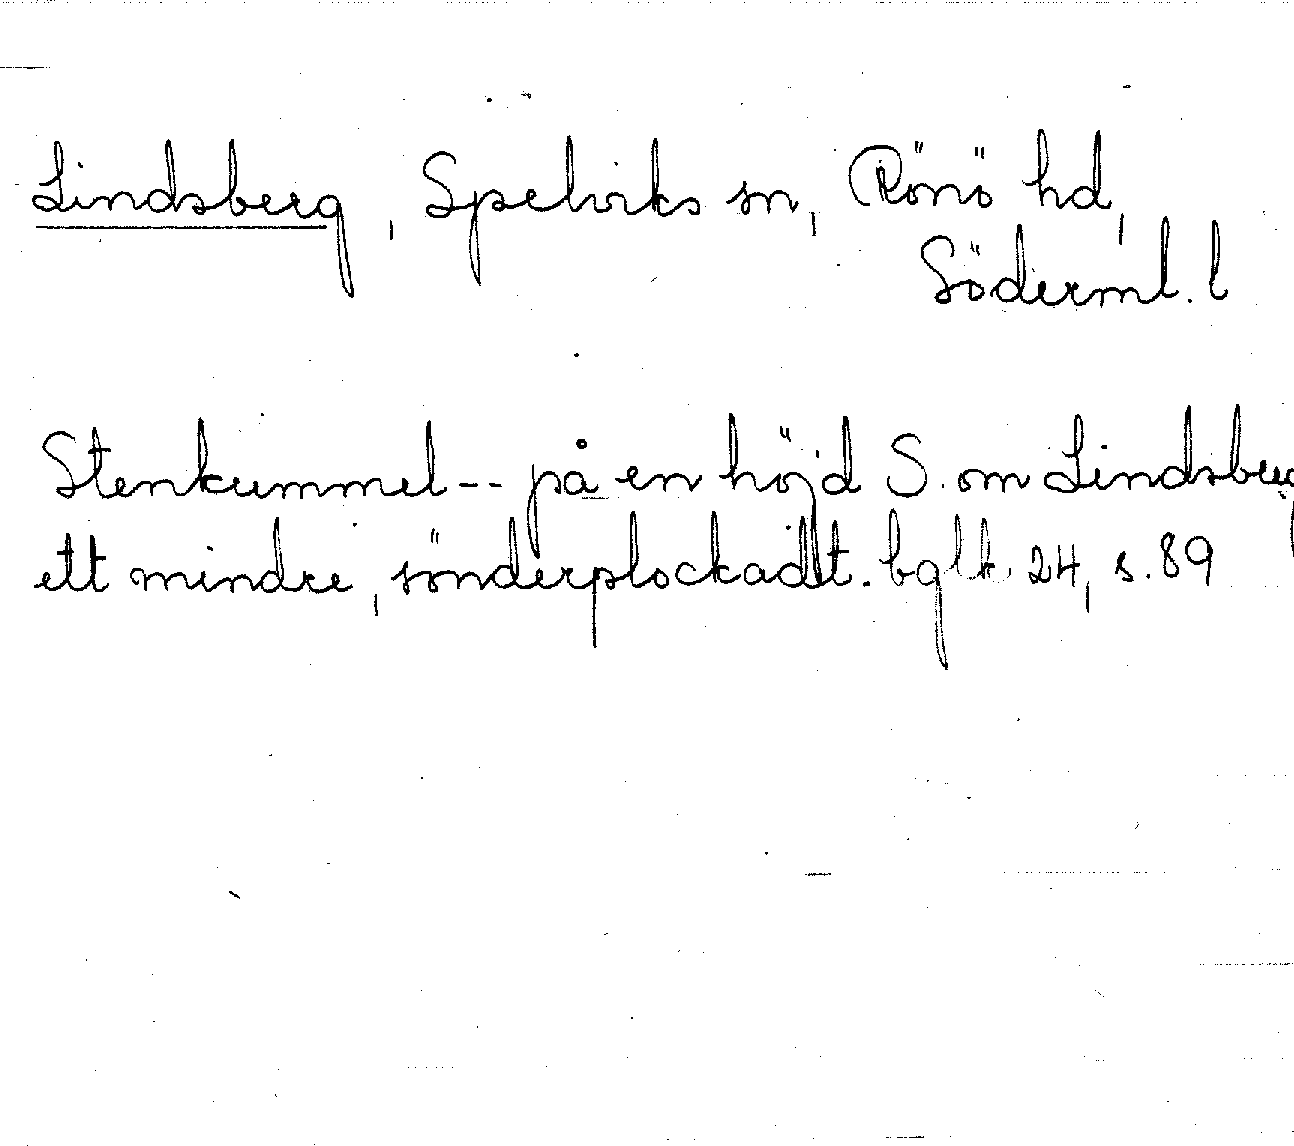 Lindsberg, Spelviks sn, Rönö hd,
Söderml. l
Stenkummel -- på en höjd S. om Lindsberg
ett mindre, sönderplockadt. bglk 24, s. 89